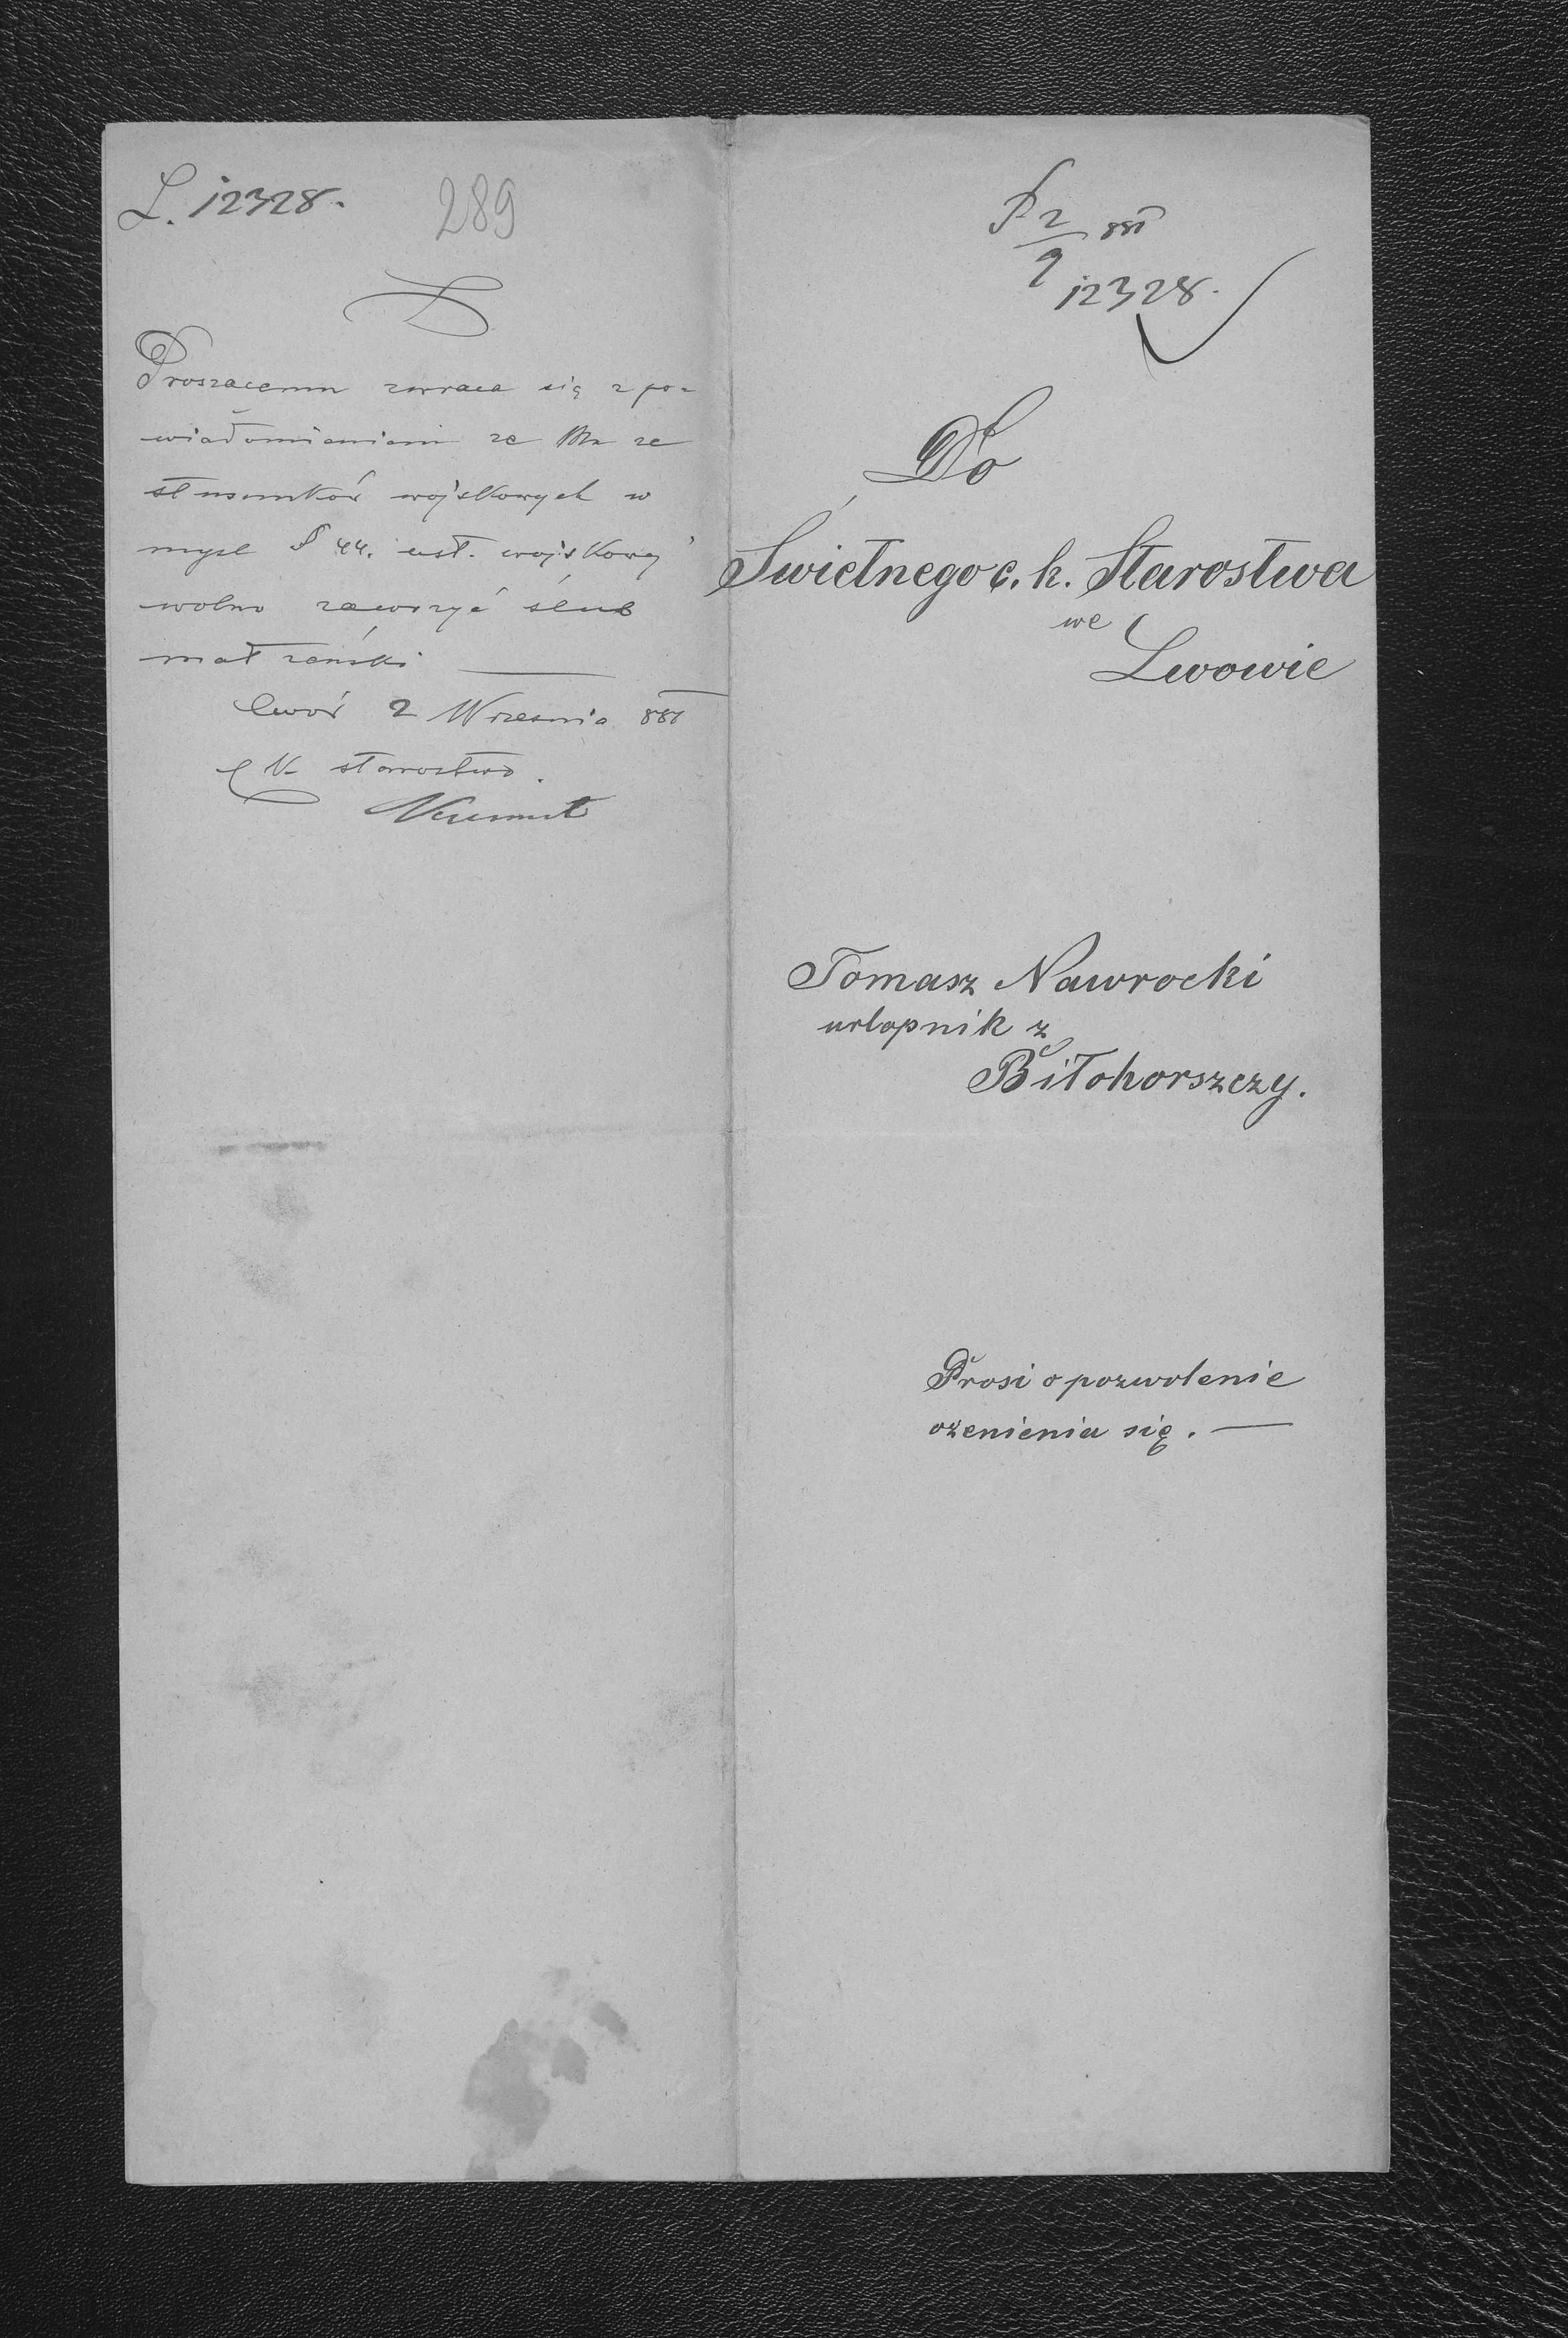 L. 12328.
289
Proszacemu zwraca się z po-
wiadomieniem ze Mu ze
stosunków wojskowych w
mysl § 44. ust. wojskowej
wolno zawrzyć ślub
małżeński
Lwów 2 Wrzesnia 881
C K starostwo.
2/9 881
12328.
Do
Świetnego c. k. Starostwa
we
Lwowie
Tomasz Nawrocki
urlopnik z
Biłohorszczy.
Prosi o pozwolenie
ożenienia się. —